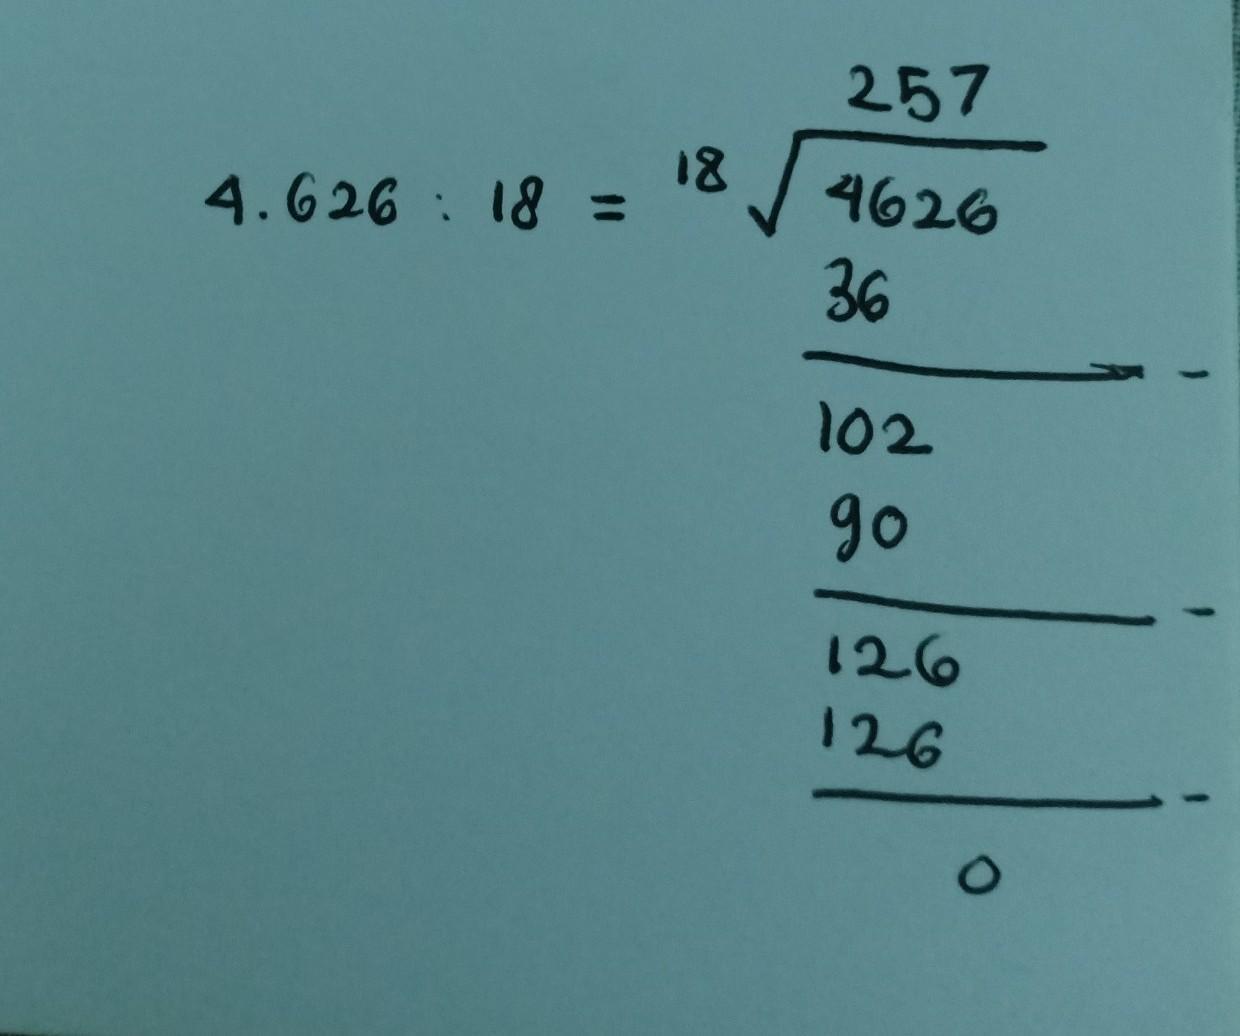 257
4.626 : 18 = 18 √4626
36
-
102
90
-
126
126
-
0